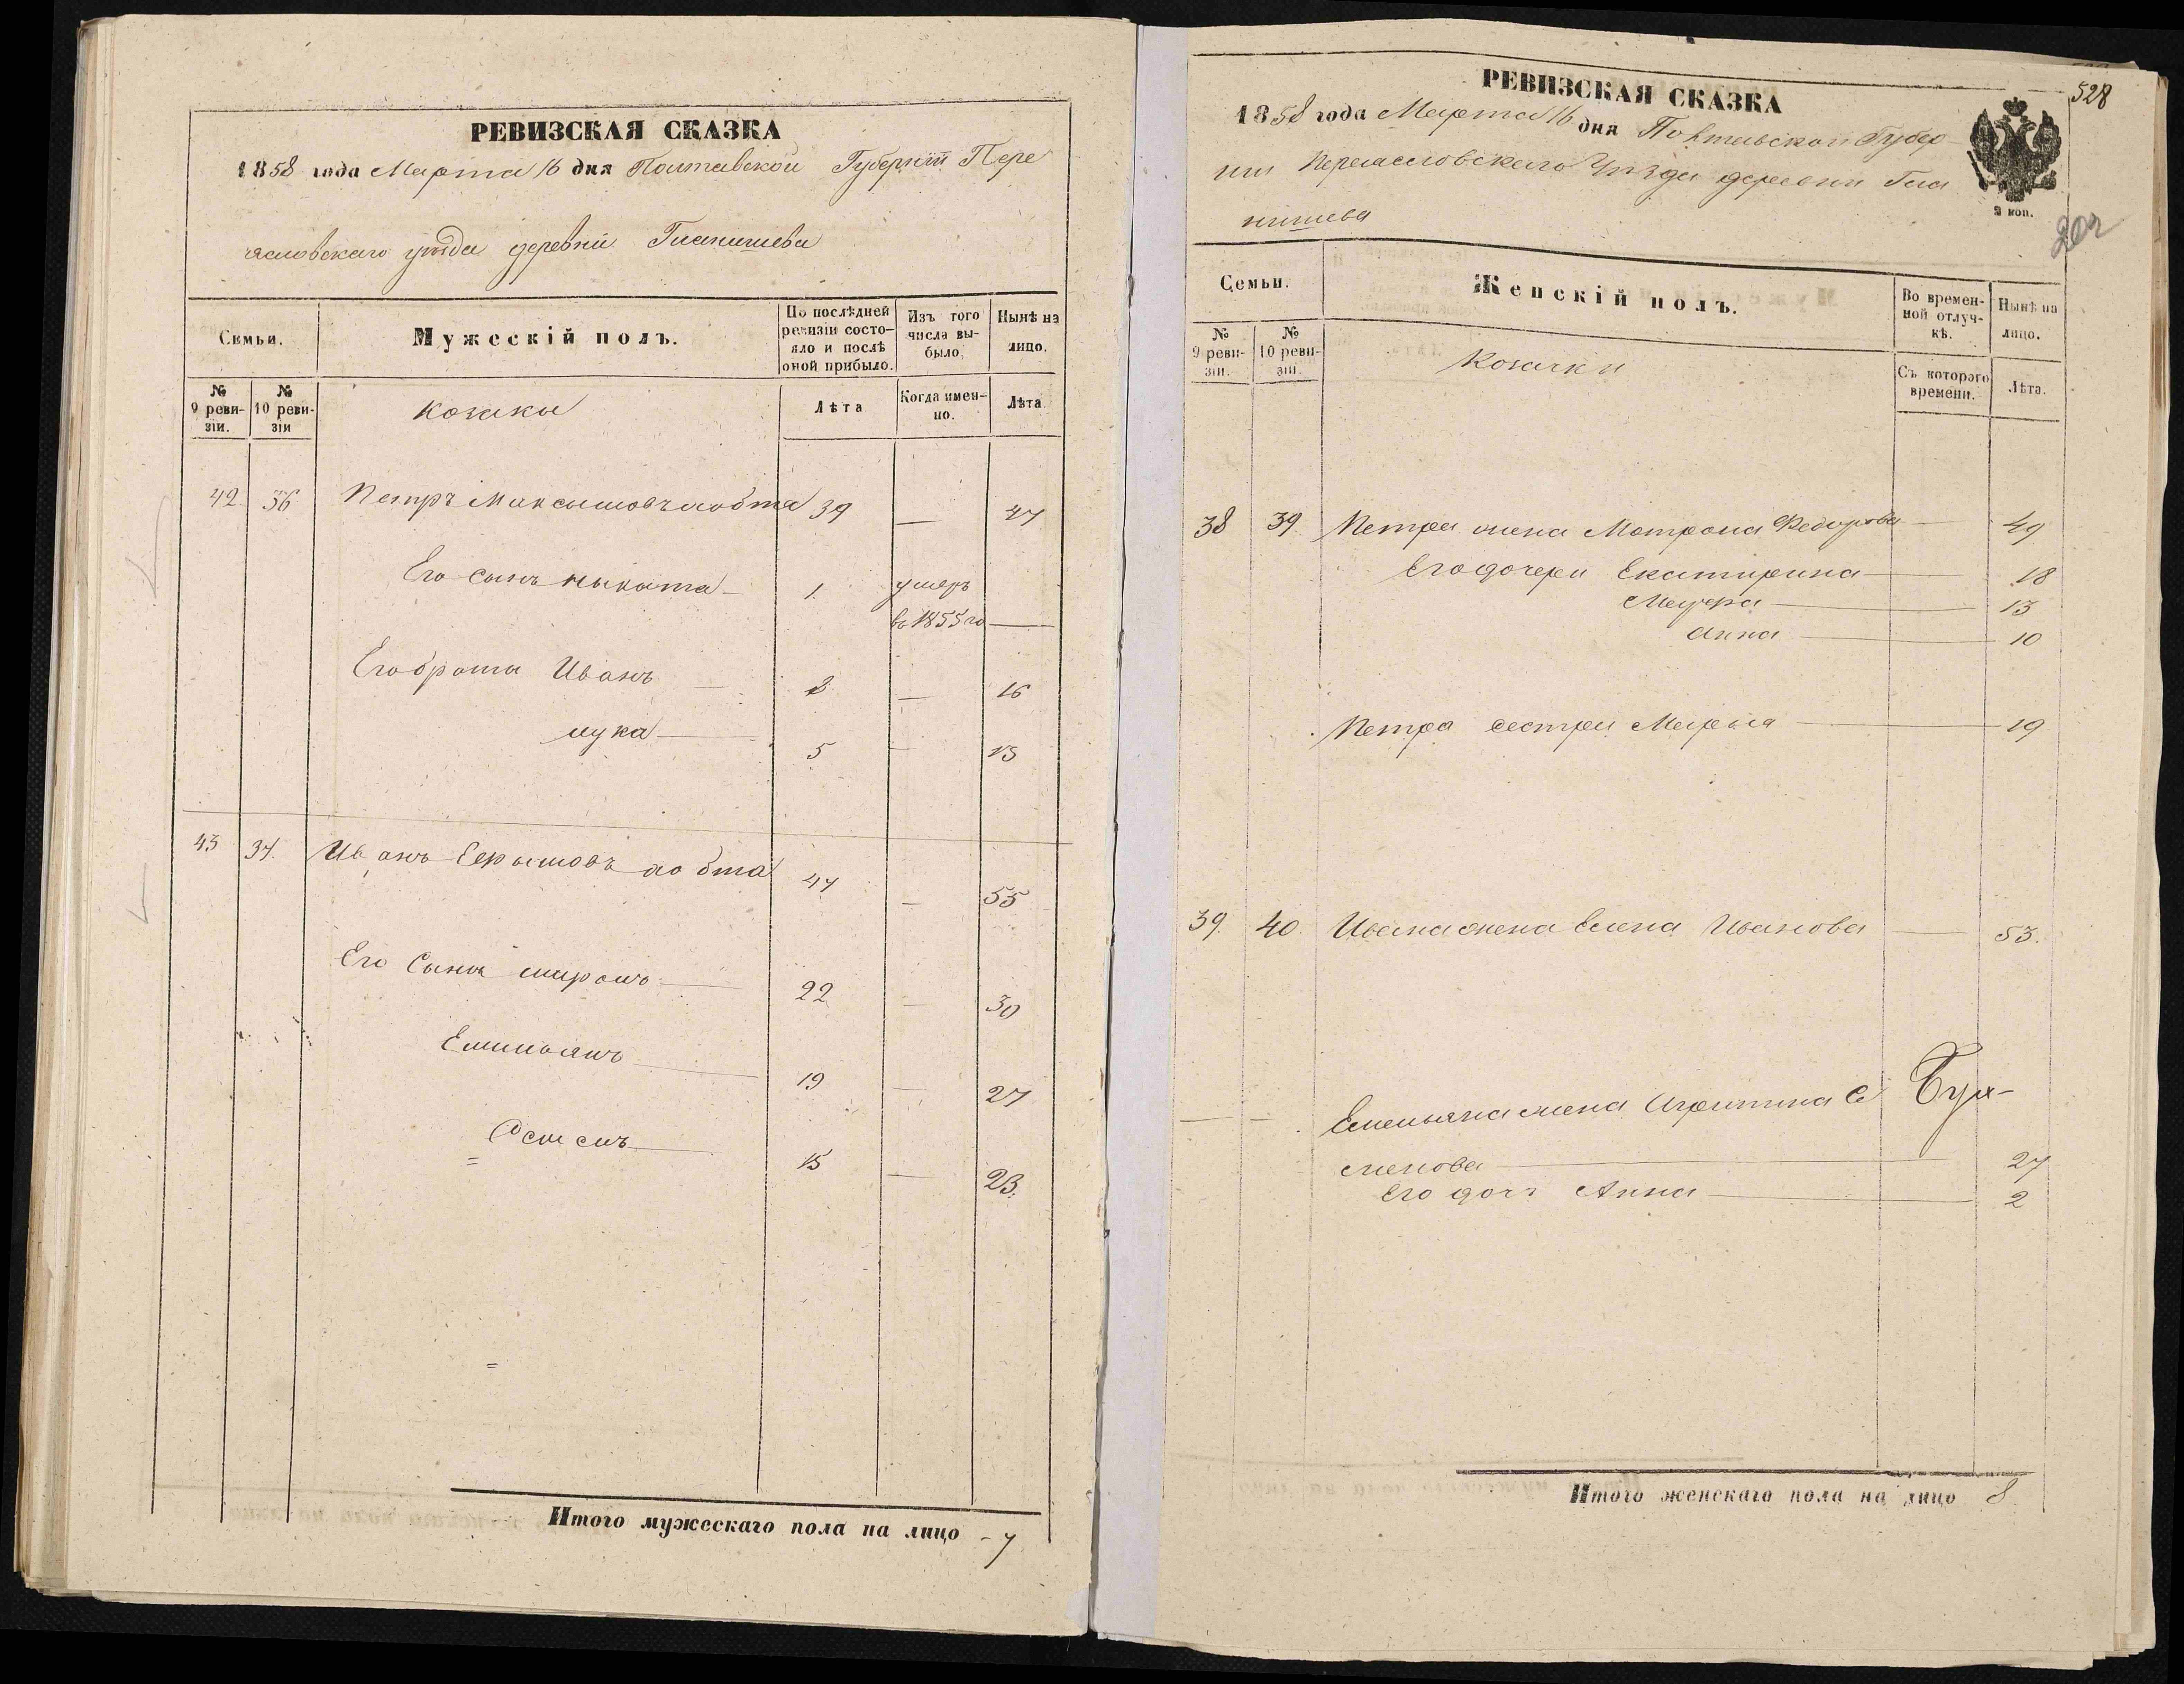 РЕВИЗСКАЯ СКАЗКА
1858 года Марта 16 дня Полтавской Губерніи Пере
ясловскаго уѣзда деревни
Семьи.
Мужескій полъ.
По послѣдней ревизіи состояло и послѣ оной прибыло.
Изъ того числа выбыло.
Нынѣ на лицо.
№ 9 ревизіи.
№ 10 ревизіи
козаки
Лѣта
Когда именно.
Лѣта
42. 36 Петръ Максимовъ 39 — 47
Его сынъ Никита — 1. умеръ
въ 1855 го —
Его браты Иванъ — 8 — 16
лука — 5 — 13
43 37. Иванъ 47 — 55
Его Сыны — 22 — 30
Емельянъ — 19 — 27
15 — 23.
Итого мужескаго пола на лицо - 7
РЕВИЗСКАЯ СКАЗКА
528
1858 года Марта 16 дня Полтавской Губер
нии Переясловскаго Уѣзда деревни
2 коп.
Семьи.
Женскій полъ.
Во временной отлучкѣ.
Нынѣ на лицо.
№ 9 ревизіи.
№ 10 ревизіи.
Козачки
Съ котораго времени.
Лѣта.
38 39. Петра жена Матрона Федорова — 49
Его дочери Екатирина — 18
13
Анна — 10
Петра сестра Марья — 19
39. 40. Ивана жена Елена Иванова — 53.
— — Емельяна жена Се
менова — 27
Его доч Анна — 2
Итого женскаго пола на лицо 8